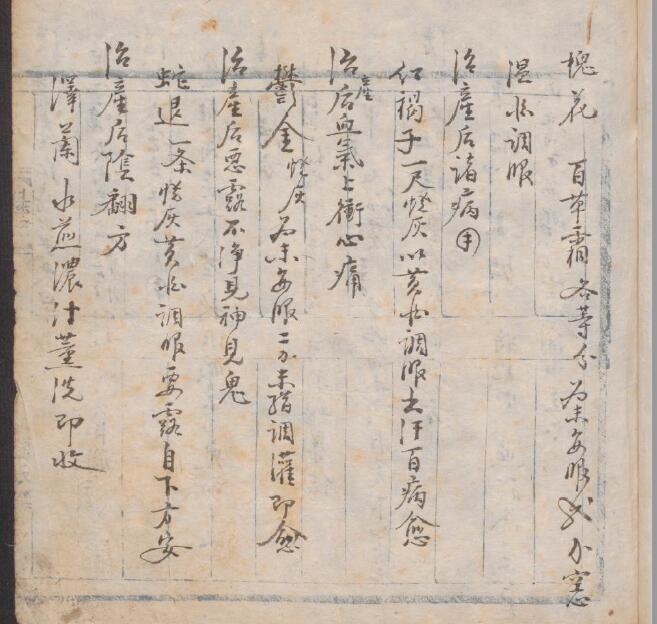 槐花 百草霜 各等分 為末每服 分
温酒調服
治產后諸病
紅褐子一尺燒灰以黃酒調服出汗百病愈
治產后血氣上衝心痛
鬱金燒灰為末每服二分米醋調灌即愈
治產后惡露不淨見神見鬼
蛇退一条燒灰黃酒調服惡露自下方安
治產后陰翻方
澤蘭水煎濃汁薰洗即收